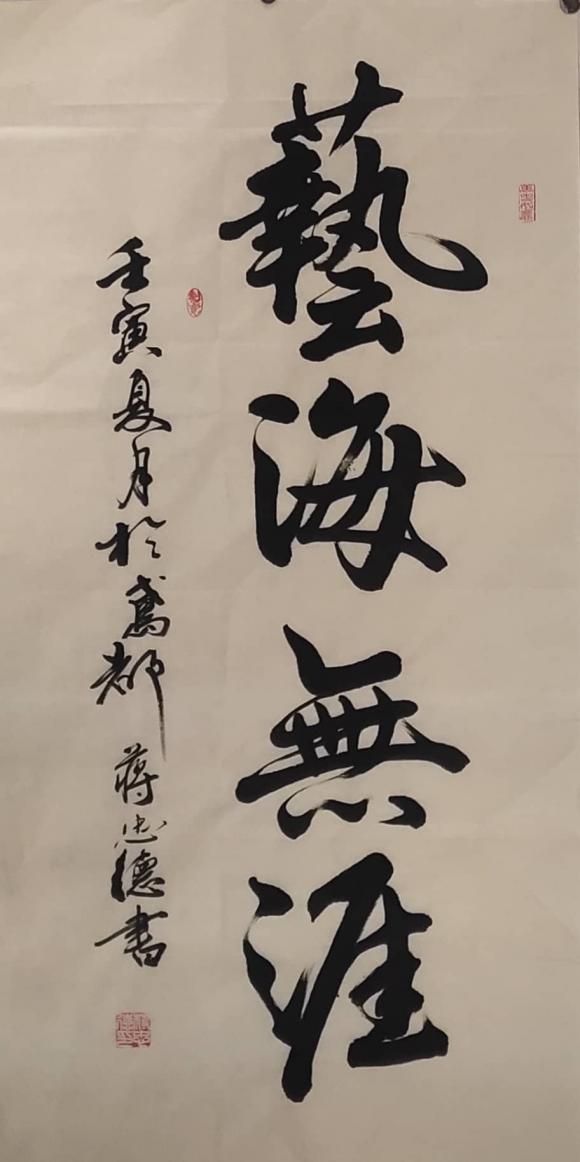 藝海無涯
壬寅夏月於鳶都 蔣忠德書